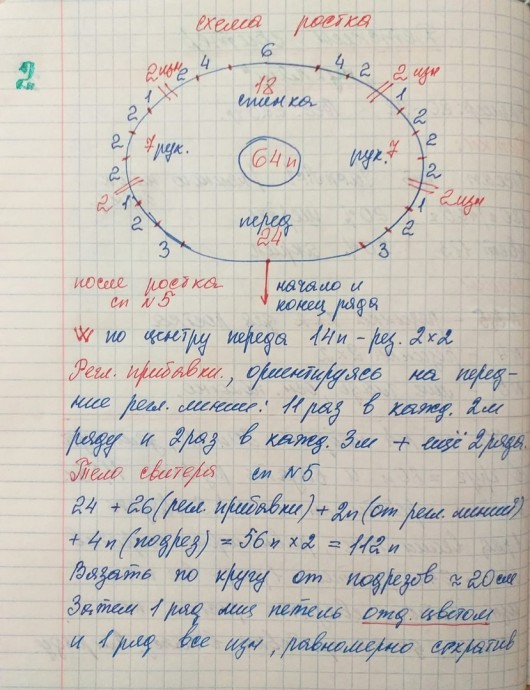 схема ростка
2
6
4 4
2 2
2изн 2 изн
18
спинка
1 1
2 2
2 2
7 рук. рук. 7
64п
2 2
2 2изн
1 1
2 2
3 3
перед
24
после ростка
сп №5
начало и
конец ряда
W по центру переда 14п - рез. 2×2
Регл. прибавки, ориентируясь на перед-
ние регл. линии: 11 раз в кажд. 2м
ряду и 2 раз в кажд. 3м + ещё 2 ряда.
Тело свитера сп №5
24 + 26 (регл. прибавки) + 2п (от регл. линий)
+ 4п (подрез) = 56п × 2 = 112п
Вязать по кругу от подрезов ≈ 20см
Затем 1 ряд лиц петель отд. цветом
и 1 ряд все изн, равномерно сократив